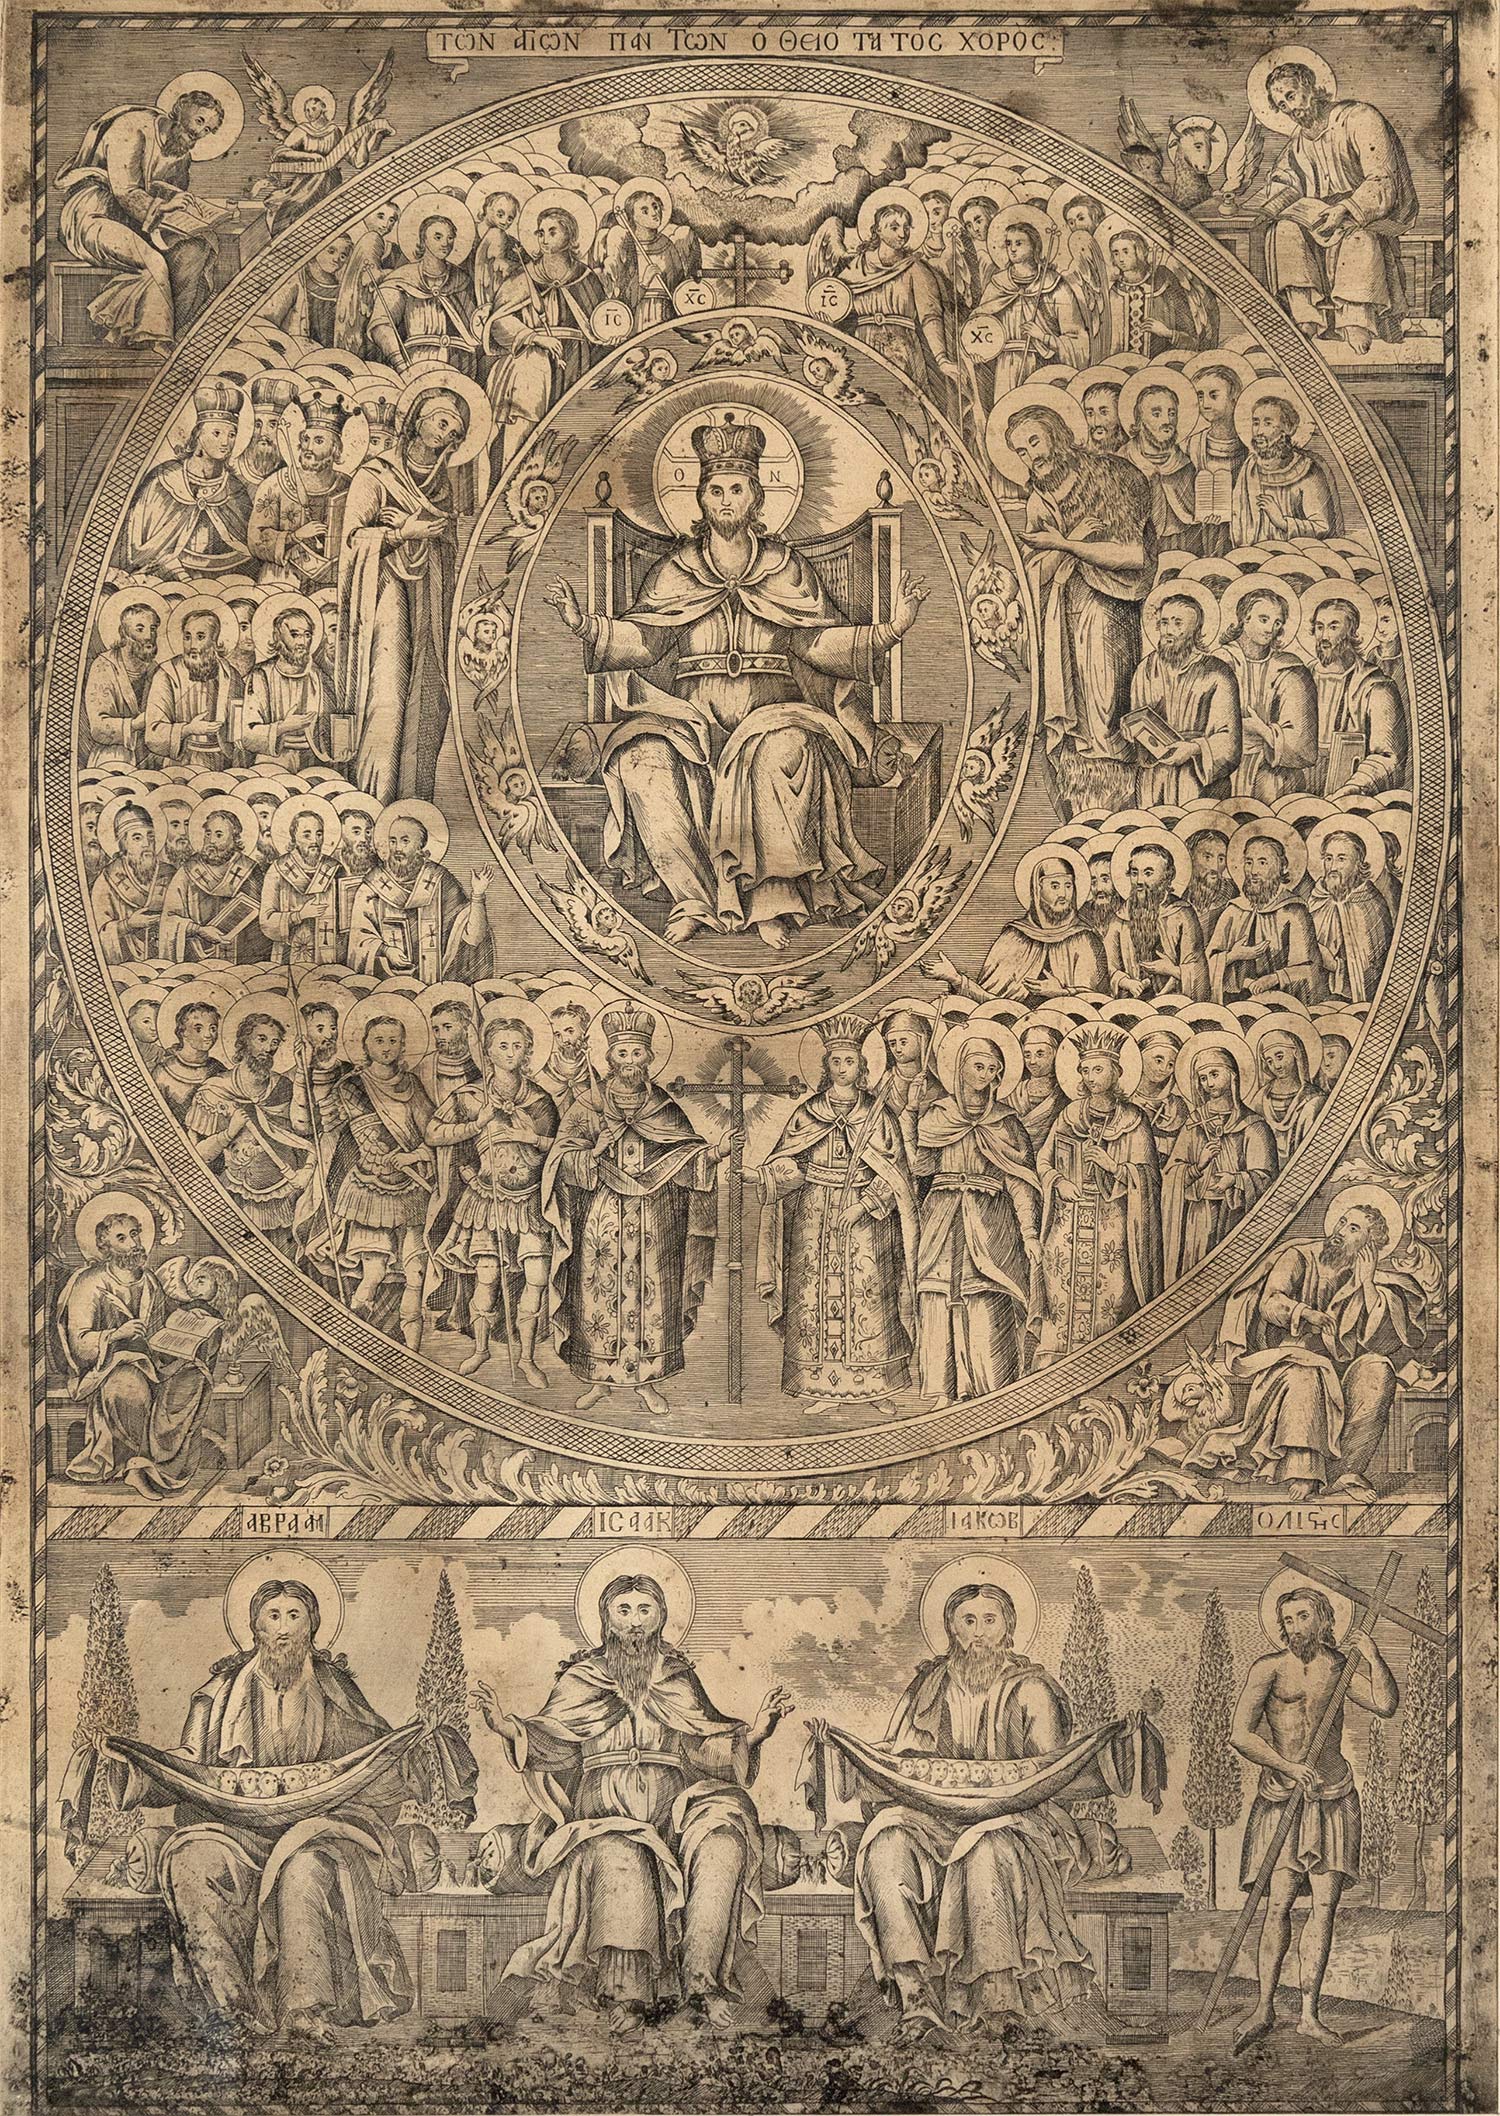 ΤῶΝ ἉΓΙΩΝ ΠΑΝΤΩΝ Ὁ ΘΕΙΟΤΑΤΟΣ ΧΟΡΟΣ:
Χ͞Ϲ Ι͞Ϲ
Ι͞Ϲ Χ͞Ϲ
Ο Ν
ΑΒΡΑΑΜ ΙϹΑΑΚ ΙΑΚΩΒ Ο ΛΙϹΗϹ